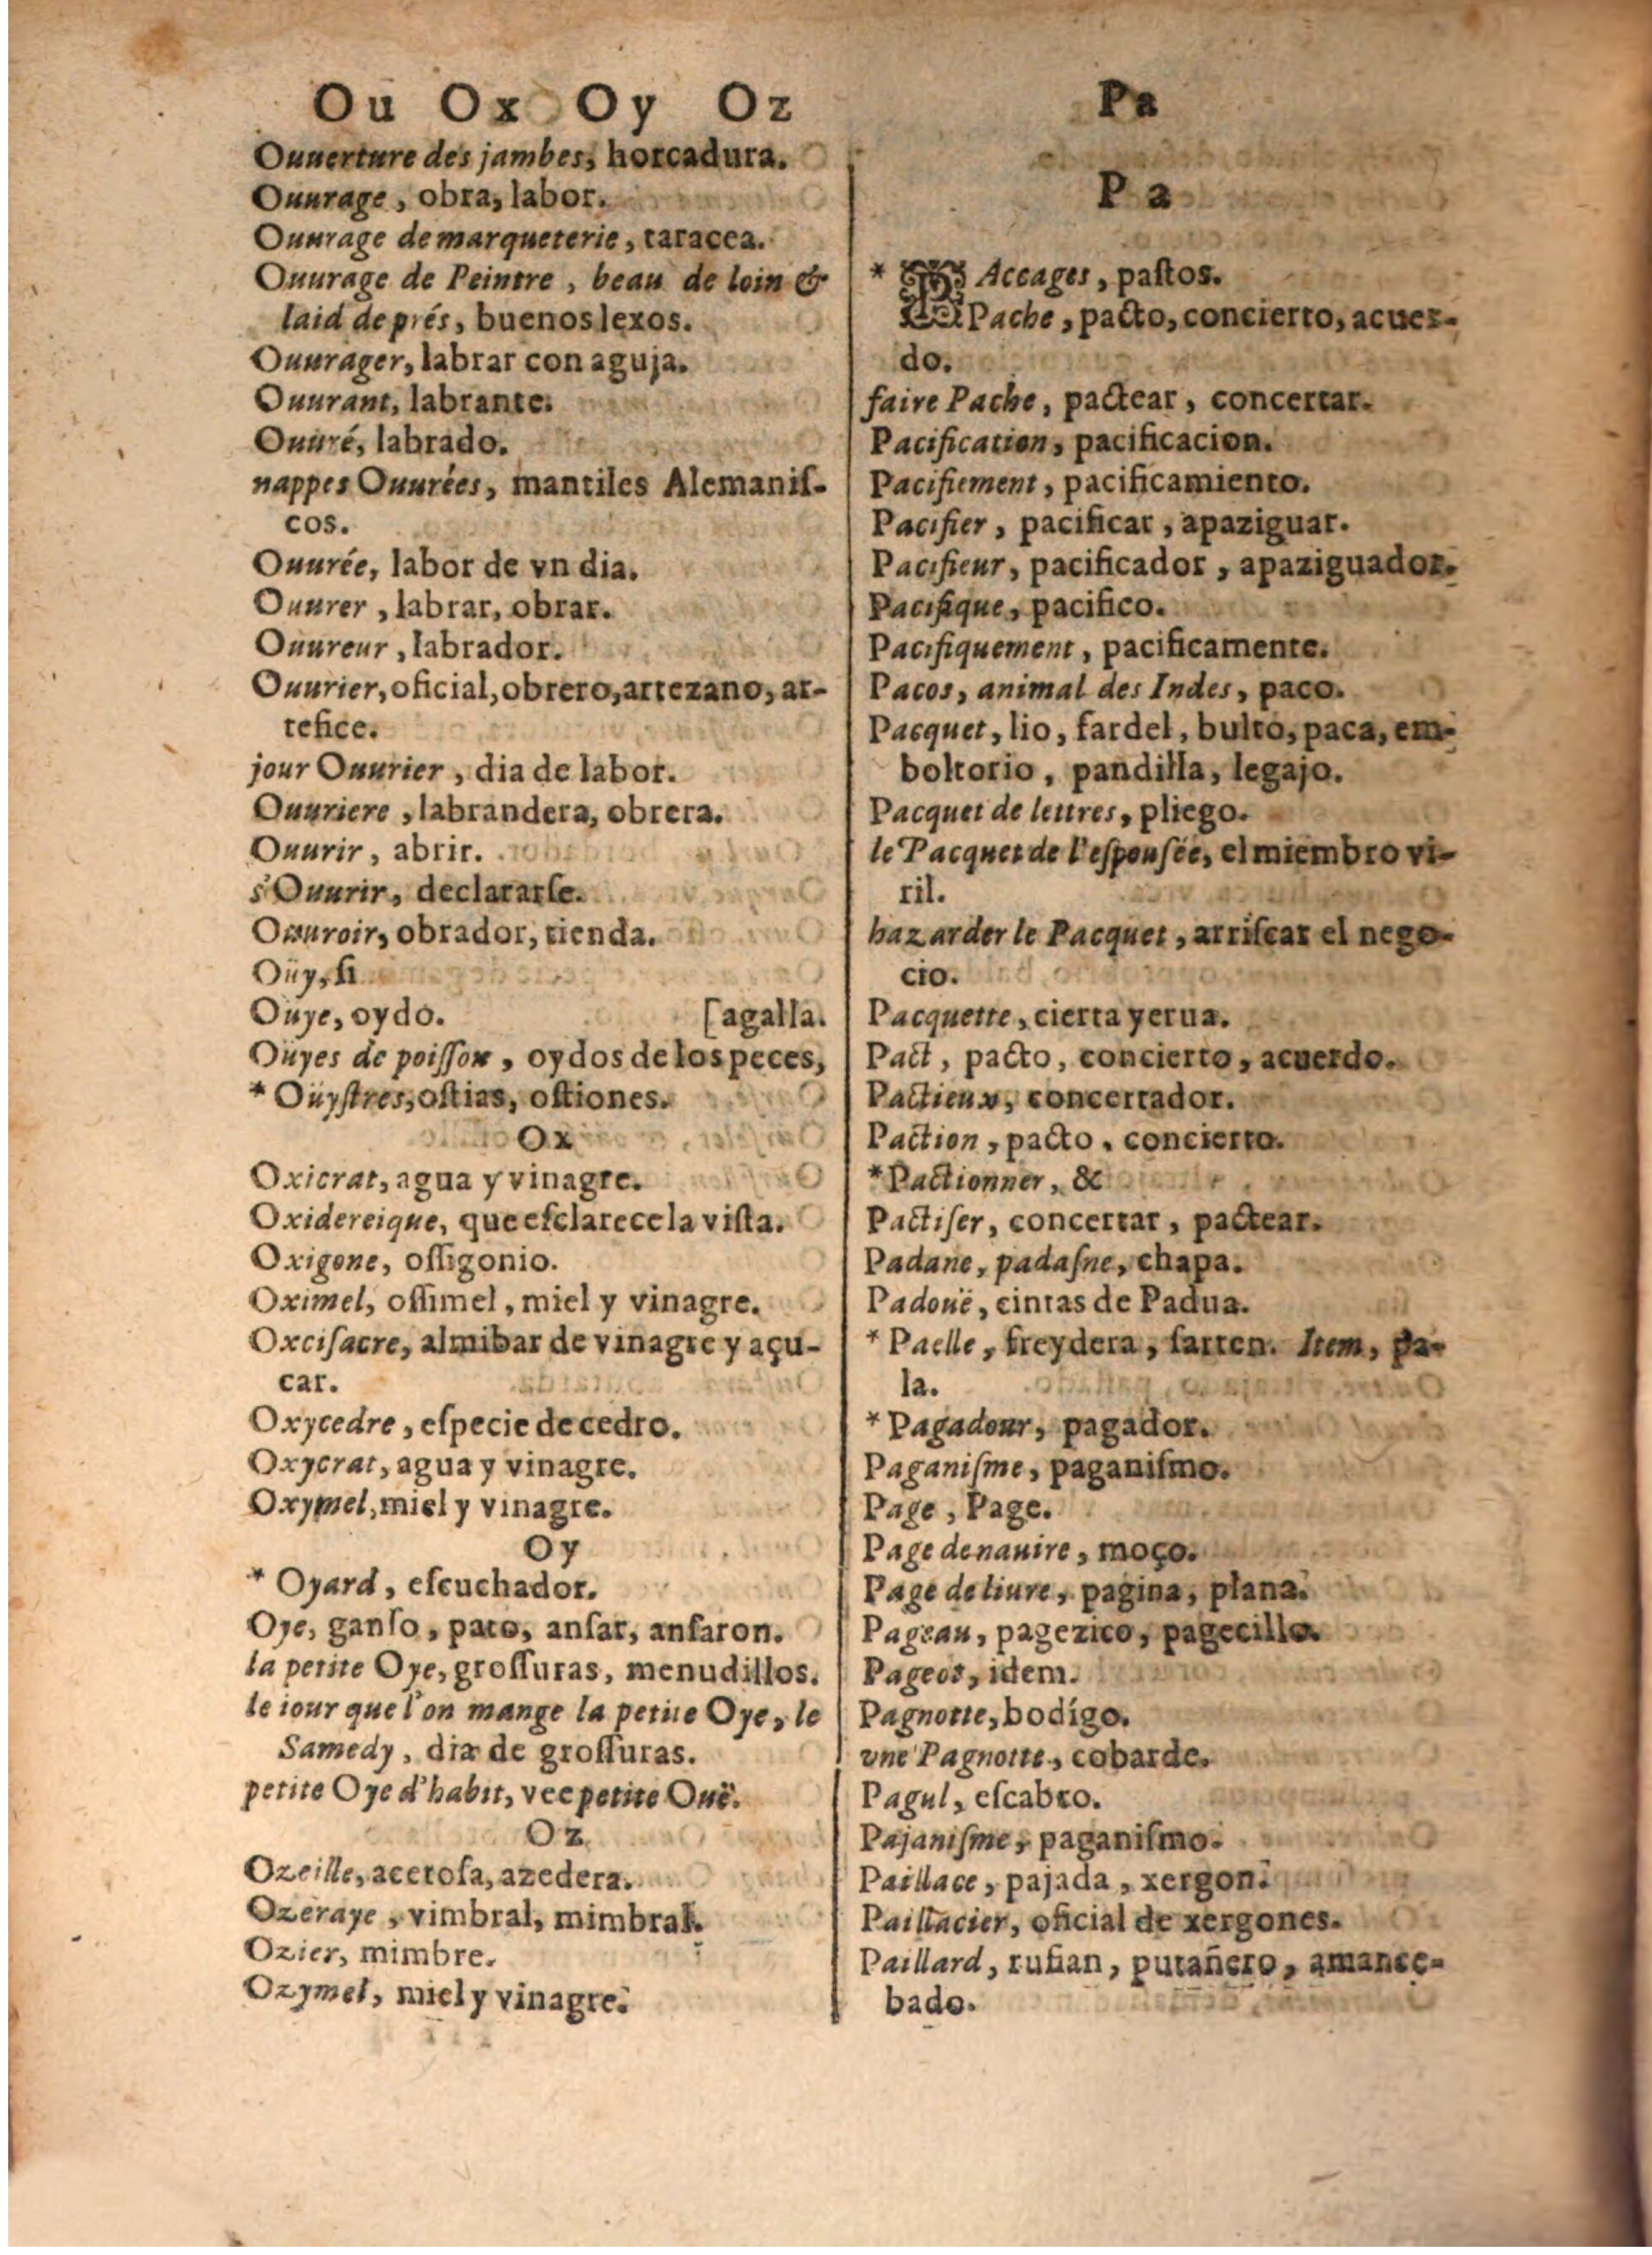 Ou Ox Oy Oz
Ouuerture des jambes, horcadura.
Ouurage, obra, labor.
Ouurage de marqueterie, taracea.
Ouurage de Peintre, beau de loin &
laid de prés, buenos lexos.
Ouurager, labrar con aguja.
Ouurant, labrante.
Ouuré, labrado.
nappes Ouurées, mantiles Alemaniſ-
cos.
Ouurée, labor de vn dia.
Ouurer, labrar, obrar.
Ouureur, labrador.
Ouurier, oficial, obrero, artezano, ar-
tefice.
jour Ouurier, dia de labor.
Ouuriere, labrandera, obrera.
Ouurir, abrir.
s'Ouurir, declararſe.
Ouuroir, obrador, tienda.
Oüy, ſi
Oüye, oydo. [agalla.
Oüyes de poiſſon, oydos de los peces,
* Oüyſtres, oſtias, oſtiones.
Ox
Oxicrat, agua y vinagre.
Oxidereique, que eſclarece la viſta.
Oxigone, oſſigonio.
Oximel, oſſimel, miel y vinagre.
Oxciſacre, almibar de vinagre y açu-
car.
Oxycedre, eſpecie de cedro.
Oxycrat, agua y vinagre.
Oxymel, miel y vinagre.
Oy
* Oyard, eſcuchador.
Oye, ganſo, pato, anſar, anſaron.
la petite Oye, groſſuras, menudillos.
le iour que l'on mange la petite Oye, le
Samedy, dia de groſſuras.
petite Oye d'habit, vee petite Ouë.
Oz
Ozeille, acetoſa, azedera.
Ozeraye, vimbral, mimbral.
Ozier, mimbre.
Ozymel, miel y vinagre.
Pa
Pa
* PAccages, paſtos.
Pache, pacto, concierto, acuer-
do.
faire Pache, pactear, concertar.
Pacification, pacificacion.
Pacifiement, pacificamiento.
Pacifier, pacificar, apaziguar.
Pacifieur, pacificador, apaziguador.
Pacifique, pacifico.
Pacifiquement, pacificamente.
Pacos, animal des Indes, paco.
Pacquet, lio, fardel, bulto, paca, em-
boltorio, pandilla, legajo.
Pacquet de lettres, pliego.
le Pacquet de l'eſpouſée, el miembro vi-
ril.
hazarder le Pacquet, arriſcar el nego-
cio.
Pacquette, cierta yerua.
Pact, pacto, concierto, acuerdo.
Pactieux, concertador.
Paction, pacto, concierto.
*Pactionner, &
Pactiſer, concertar, pactear.
Padane, padaſne, chapa.
Padouë, cintas de Padua.
* Paelle, freydera, ſarten. Item, pa-
la.
*Pagadour, pagador.
Paganiſme, paganiſmo.
Page, Page.
Page de nauire, moço.
Page de liure, pagina, plana.
Pageau, pagezico, pagecillo.
Pageot, idem.
Pagnotte, bodígo.
vne Pagnotte, cobarde.
Pagul, eſcabro.
Pajaniſme, paganiſmo.
Paillace, pajada, xergon.
Paillacier, oficial de xergones.
Paillard, rufian, putañero, amance-
bado.